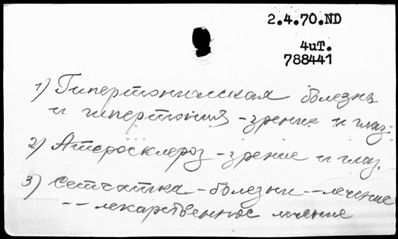 2.4.70.ND
4uT.
788441
1) Гипертоническая болезнь
и гипертония - зрение и глаз.
2) Атеросклероз - зрение и глаз.
3) Сетчатка - болезни -- лечение
-- лекарственное лечение